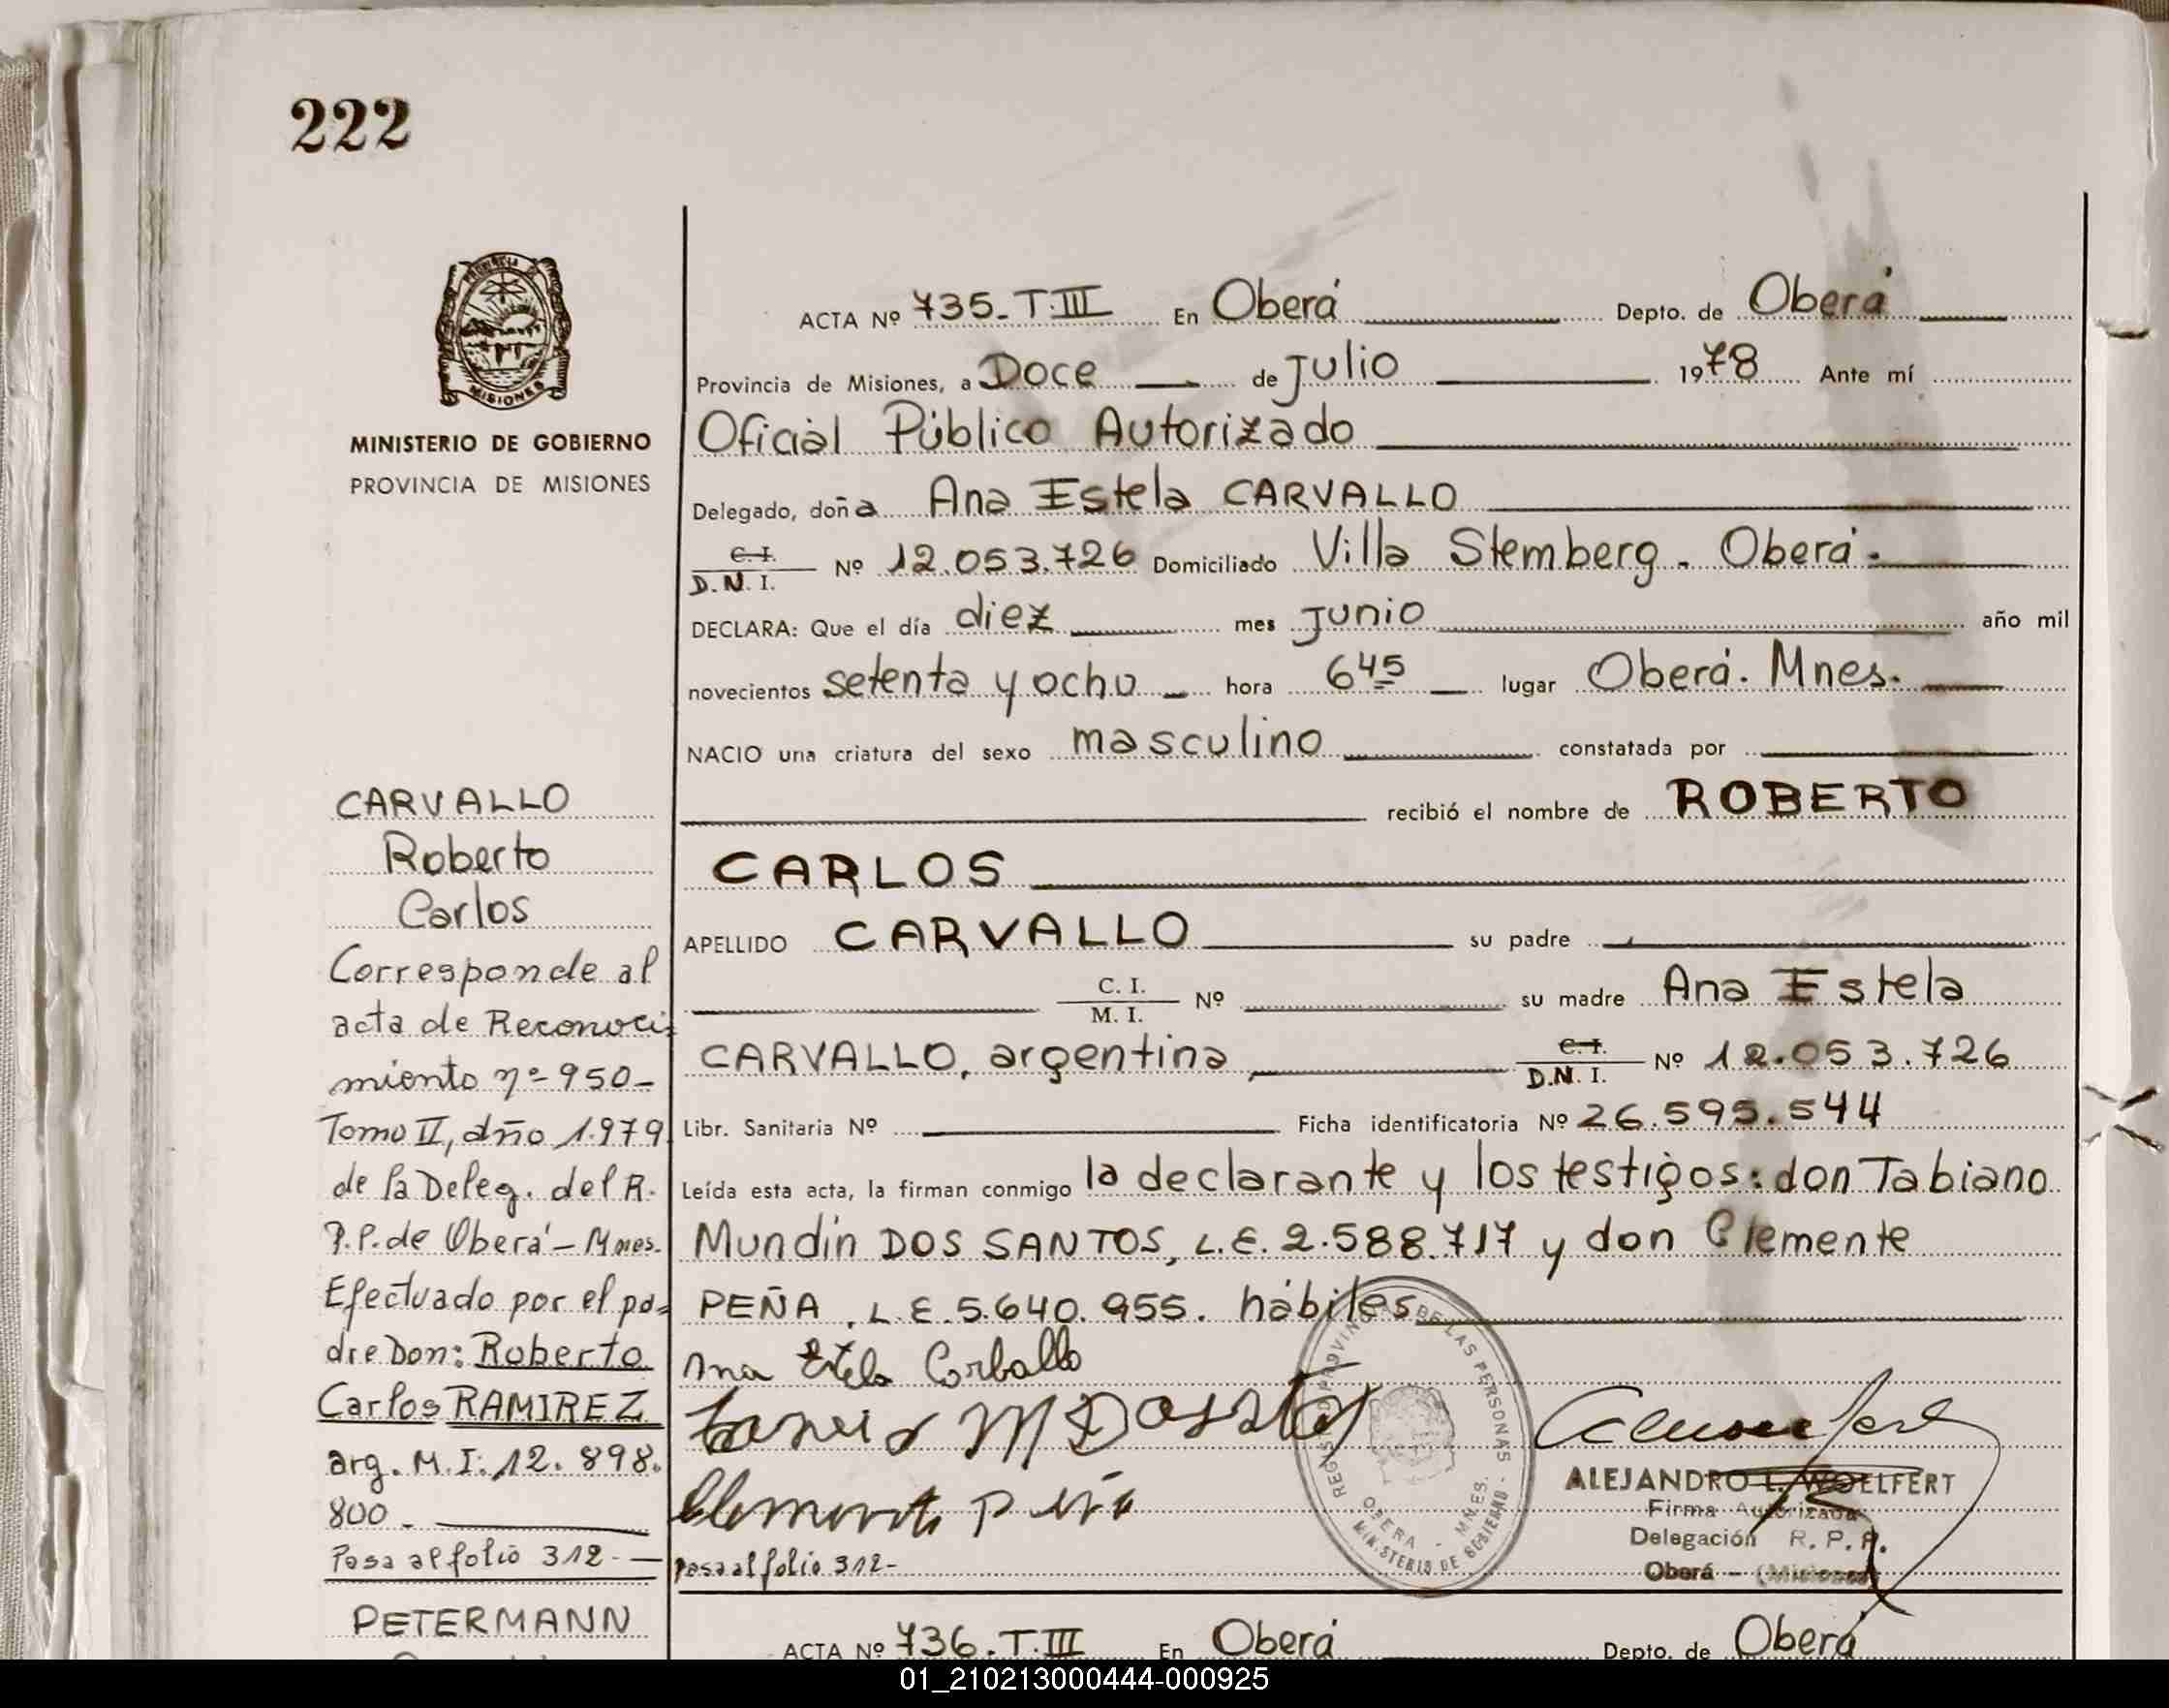 222
PROVINCIA DE
MISIONES
MINISTERIO DE GOBIERNO
PROVINCIA DE MISIONES
CARVALLO
Roberto
Carlos
Corresponde al
acta de Reconoci=
miento nº 950-
Tomo II, año 1.979
de la Deleg. del R.
P.P. de Oberá - Mnes.
Efectuado por el pa=
dre Don: Roberto
Carlos RAMIREZ
arg. M.I. 12.898.
800.-
Pasa al folio 312.-
PETERMANN
ACTA Nº 735-T.III En Oberá Depto. de Oberá
Provincia de Misiones, a Doce de Julio 1978 Ante mí
Oficial Público Autorizado
Delegado, doña Ana Estela CARVALLO
C.I.
D.N.I. Nº 12.053.726 Domiciliado Villa Stemberg. Oberá.
DECLARA: Que el día diez mes Junio año mil
novecientos setenta y ocho hora 6 45 lugar Oberá. Mnes.
NACIO una criatura del sexo masculino constatada por
recibió el nombre de ROBERTO
CARLOS
APELLIDO CARVALLO su padre
C. I.
M. I. Nº su madre Ana Estela
CARVALLO, argentina, C.I.
D.N.I. Nº 12.053.726
Libr. Sanitaria Nº Ficha identificatoria Nº 26.595.544
Leída esta acta, la firman conmigo la declarante y los testigos: don Tabiano
Mundin DOS SANTOS, L.E. 2.588.717 y don Clemente
PEÑA, L.E. 5.640.955. hábiles
Ana Estela Corballo
Clemente Peña
REGISTRO PROVINCIAL DE LAS PERSONAS
OBERA - MNES.
MINISTERIO DE GOBIERNO
ALEJANDRO L. WOELFERT
Firma Autorizada
Delegación R. P. P.
Oberá - (Misiones)
Pasa al folio 312-
ACTA Nº 736.T.III En Oberá Depto. de Oberá
01_210213000444-000925